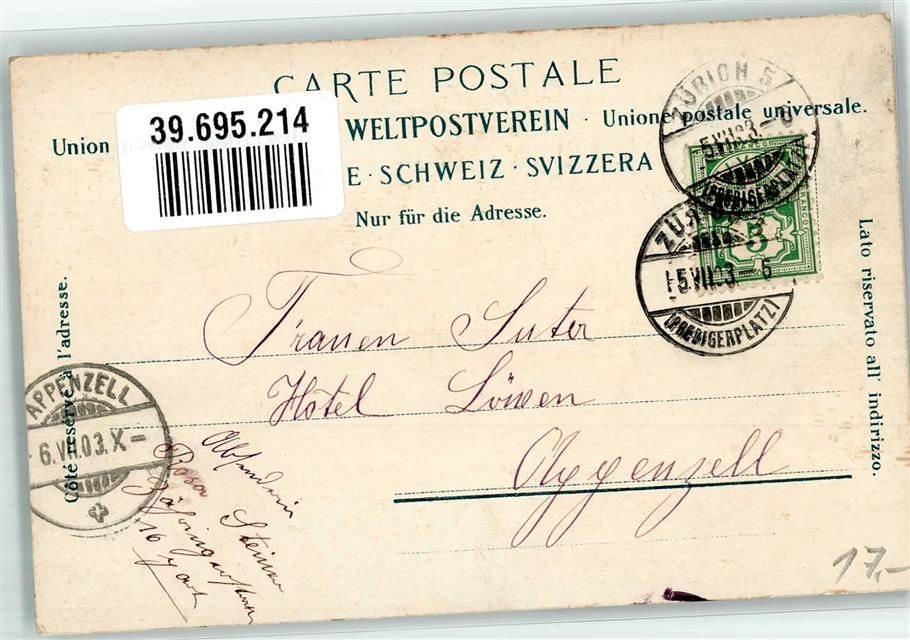 CARTE POSTALE
39.695.214
Union WELTPOSTVEREIN · Unione postale universale.
E · SCHWEIZ · SVIZZERA
Nur für die Adresse.
ZÜRICH 5
5.VII.03.
(PREDIGERPLATZ)
5
FRANCO
5.VII.03. - 6
(PREDIGERPLATZ)
Lato riservato all' indirizzo.
Côté réservé à l'adresse.
Frauen Suter
Hôtel Löwen
Appenzell
APPENZELL
6.VII.03.X-
Absenderin
Rosa Steiner
17,-